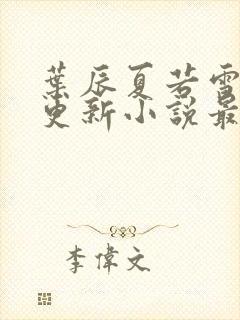 葉辰夏若雪
更新小說最
李偉文